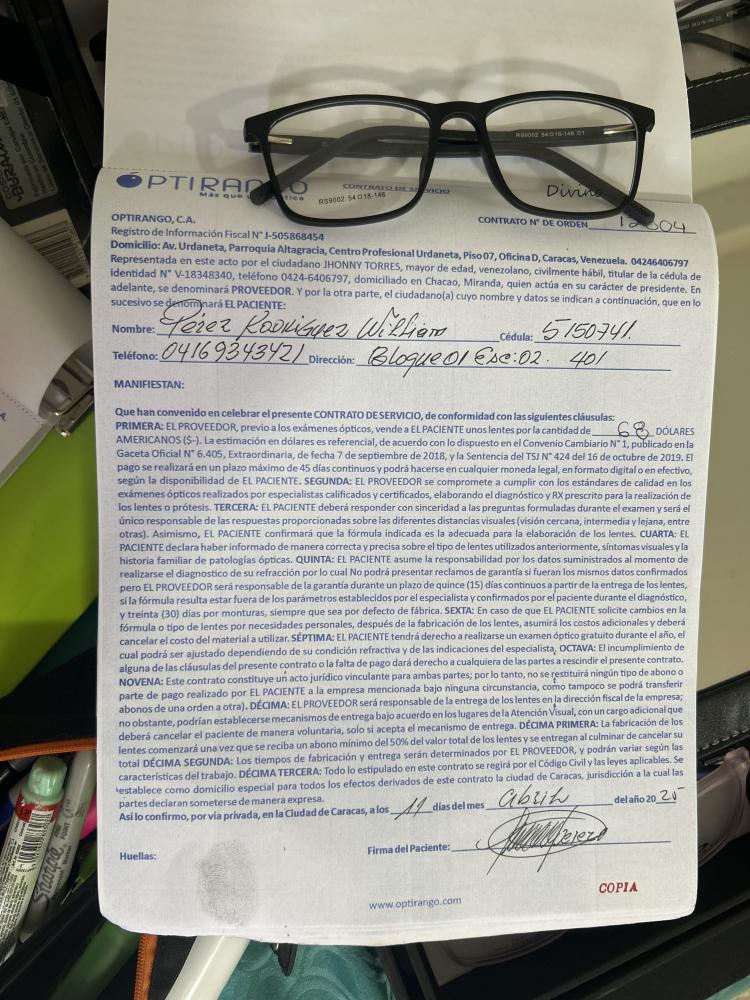 RS9002 54□18-146 C1
RS9002 54□18-146
Divino
OPTIRANGO
CONTRATO DE SERVICIO
Más que
OPTIRANGO, C.A.
CONTRATO N° DE ORDEN
Registro de Información Fiscal N° J-505868454
Domicilio: Av. Urdaneta, Parroquia Altagracia, Centro Profesional Urdaneta, Piso 07, Oficina D, Caracas, Venezuela. 04246406797
Representada en este acto por el ciudadano JHONNY TORRES, mayor de edad, venezolano, civilmente hábil, titular de la cédula de
identidad N° V-18348340, teléfono 0424-6406797, domiciliado en Chacao, Miranda, quien actúa en su carácter de presidente. En
adelante, se denominará PROVEEDOR. Y por la otra parte, el ciudadano(a) cuyo nombre y datos se indican a continuación, que en lo
sucesivo se denominará EL PACIENTE:
Nombre: Pérez Rodriguez William Cédula: 5150741.
Teléfono: 04169343421 Dirección: Bloque 01 Esc: 02. 401
MANIFIESTAN:
Que han convenido en celebrar el presente CONTRATO DE SERVICIO, de conformidad con las siguientes cláusulas:
PRIMERA: EL PROVEEDOR, previo a los exámenes ópticos, vende a EL PACIENTE unos lentes por la cantidad de 68 DÓLARES
AMERICANOS ($-). La estimación en dólares es referencial, de acuerdo con lo dispuesto en el Convenio Cambiario N° 1, publicado en la
Gaceta Oficial N° 6.405, Extraordinaria, de fecha 7 de septiembre de 2018, y la Sentencia del TSJ N° 424 del 16 de octubre de 2019. El
pago se realizará en un plazo máximo de 45 días continuos y podrá hacerse en cualquier moneda legal, en formato digital o en efectivo,
según la disponibilidad de EL PACIENTE. SEGUNDA: EL PROVEEDOR se compromete a cumplir con los estándares de calidad en los
exámenes ópticos realizados por especialistas calificados y certificados, elaborando el diagnóstico y RX prescrito para la realización de
los lentes o prótesis. TERCERA: EL PACIENTE deberá responder con sinceridad a las preguntas formuladas durante el examen y será el
único responsable de las respuestas proporcionadas sobre las diferentes distancias visuales (visión cercana, intermedia y lejana, entre
otras). Asimismo, EL PACIENTE confirmará que la fórmula indicada es la adecuada para la elaboración de los lentes. CUARTA: EL
PACIENTE declara haber informado de manera correcta y precisa sobre el tipo de lentes utilizados anteriormente, síntomas visuales y la
historia familiar de patologías ópticas. QUINTA: EL PACIENTE asume la responsabilidad por los datos suministrados al momento de
realizarse el diagnostico de su refracción por lo cual No podrá presentar reclamos de garantía si fueran los mismos datos confirmados
pero EL PROVEEDOR será responsable de la garantía durante un plazo de quince (15) días continuos a partir de la entrega de los lentes,
si la fórmula resulta estar fuera de los parámetros establecidos por el especialista y confirmados por el paciente durante el diagnóstico,
y treinta (30) días por monturas, siempre que sea por defecto de fábrica. SEXTA: En caso de que EL PACIENTE solicite cambios en la
fórmula o tipo de lentes por necesidades personales, después de la fabricación de los lentes, asumirá los costos adicionales y deberá
cancelar el costo del material a utilizar. SÉPTIMA: EL PACIENTE tendrá derecho a realizarse un examen óptico gratuito durante el año, el
cual podrá ser ajustado dependiendo de su condición refractiva y de las indicaciones del especialista. OCTAVA: El incumplimiento de
alguna de las cláusulas del presente contrato o la falta de pago dará derecho a cualquiera de las partes a rescindir el presente contrato.
NOVENA: Este contrato constituye un acto jurídico vinculante para ambas partes; por lo tanto, no se restituirá ningún tipo de abono o
parte de pago realizado por EL PACIENTE a la empresa mencionada bajo ninguna circunstancia, como tampoco se podrá transferir
abonos de una orden a otra). DÉCIMA: EL PROVEEDOR será responsable de la entrega de los lentes en la dirección fiscal de la empresa;
no obstante, podrían establecerse mecanismos de entrega bajo acuerdo en los lugares de la Atención Visual, con un cargo adicional que
deberá cancelar el paciente de manera voluntaria, solo si acepta el mecanismo de entrega. DÉCIMA PRIMERA: La fabricación de los
lentes comenzará una vez que se reciba un abono mínimo del 50% del valor total de los lentes y se entregan al culminar de cancelar su
total DÉCIMA SEGUNDA: Los tiempos de fabricación y entrega serán determinados por EL PROVEEDOR, y podrán variar según las
características del trabajo. DÉCIMA TERCERA: Todo lo estipulado en este contrato se regirá por el Código Civil y las leyes aplicables. Se
establece como domicilio especial para todos los efectos derivados de este contrato la ciudad de Caracas, jurisdicción a la cual las
partes declaran someterse de manera expresa.
Así lo confirmo, por vía privada, en la Ciudad de Caracas, a los 11 días del mes Abril del año 20 25
Huellas:
Firma del Paciente:
COPIA
www.optirango.com
Sharpie